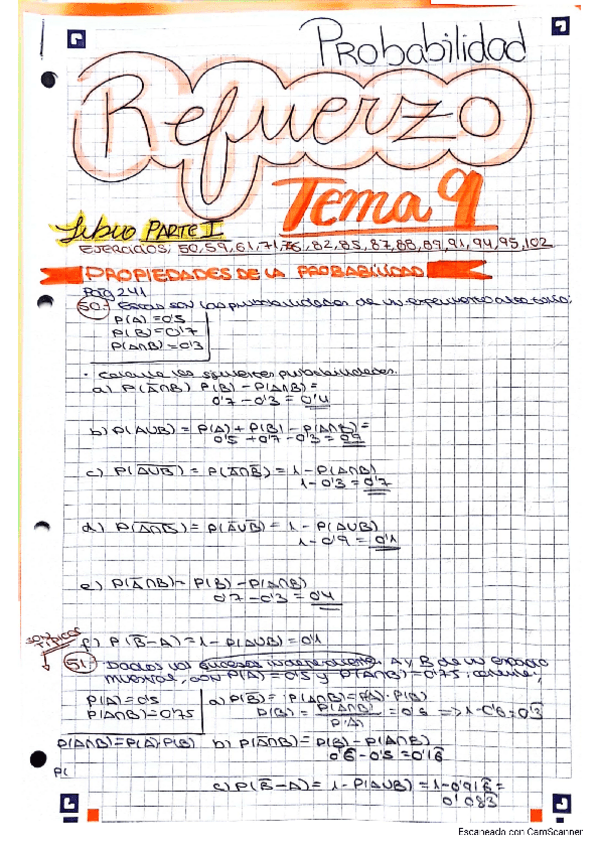 Probabilidad
Refuerzo
Tema 9
Libro PARTE I
EJERCICIOS: 50, 59, 61, 71, 76, 82, 85, 87, 88, 89, 91, 94, 95, 102
PROPIEDADES DE LA PROBABILIDAD
Pág 241
50.- Estas son las probabilidades de un experimento aleatorio:
P(A) = 0'5
P(B) = 0'7
P(A∩B) = 0'3
· Calcula las siguientes probabilidades.
a) P(A̅∩B) P(B) - P(A∩B) =
0'7 - 0'3 = 0'4
b) P(A∪B) = P(A) + P(B) - P(A∩B) =
0'5 + 0'7 - 0'3 = 0'9
c) P(A̅∪B̅) = P(A̅∩B̅) = 1 - P(A∩B)
1 - 0'3 = 0'7
d) P(A̅∩B̅) = P(A̅∪B̅) = 1 - P(A∪B)
1 - 0'9 = 0'1
e) P(A̅∩B) = P(B) - P(A∩B)
0'7 - 0'3 = 0'4
f) P(B̅-A) = 1 - P(A∪B) = 0'1
SON TÍPICOS
51.- Dados los sucesos independientes A y B de un espacio
muestral, con P(A) = 0'5 y P(A∩B) = 0'75. calcule;
P(A) = 0'5
P(A∩B) = 0'75
a) P(B̅) = P(A∩B) = P(A) · P(B)
P(B) = P(A∩B) / P(A) = 0'6 => 1 - 0'6 = 0'3
P(A∩B) = P(A) · P(B)
b) P(A̅∩B) = P(B) - P(A∩B)
0'6 - 0'5 = 0'16
P(
c) P(B̅-A) = 1 - P(A∪B) = 1 - 0'916 =
0'083
Escaneado con CamScanner